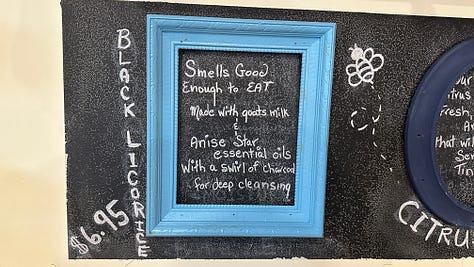 BLACK LICORICE
$6.95
Smells Good
Enough to EAT
Made with goats milk
&
Anise Star
essential oils
with a swirl of charcoal
for deep cleansing
our
itrus
Fresh,
that wil
Tin
CITRU